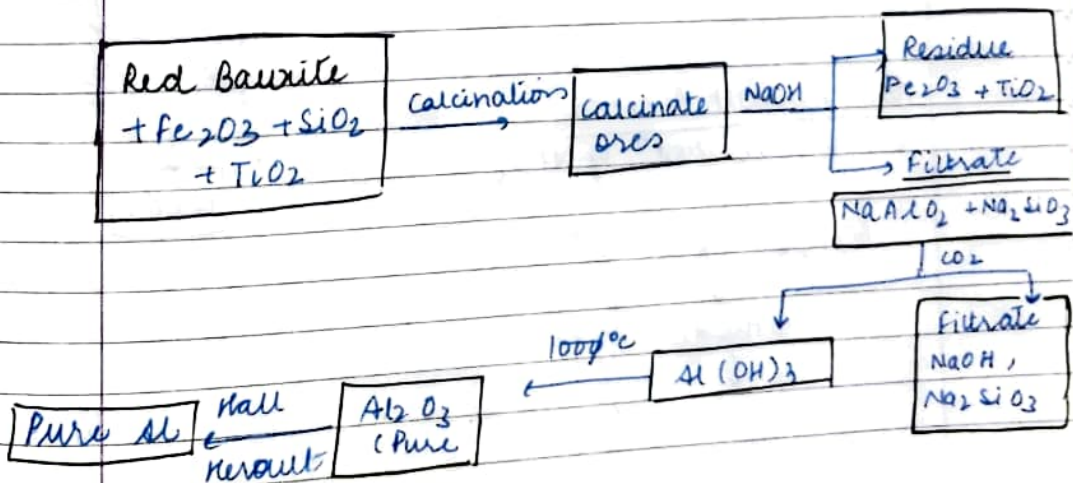 Red Bauxite
+ Fe2O3 + SiO2
+ TiO2
Calcinations
Calcinate
ores
NaOH
Residue
Fe2O3 + TiO2
Filtrate
NaAlO2 + Na2SiO3
CO2
Filtrate
NaOH,
Na2SiO3
Al(OH)3
1000°C
Al2O3
(Pure
Hall
Heroult
Pure Al